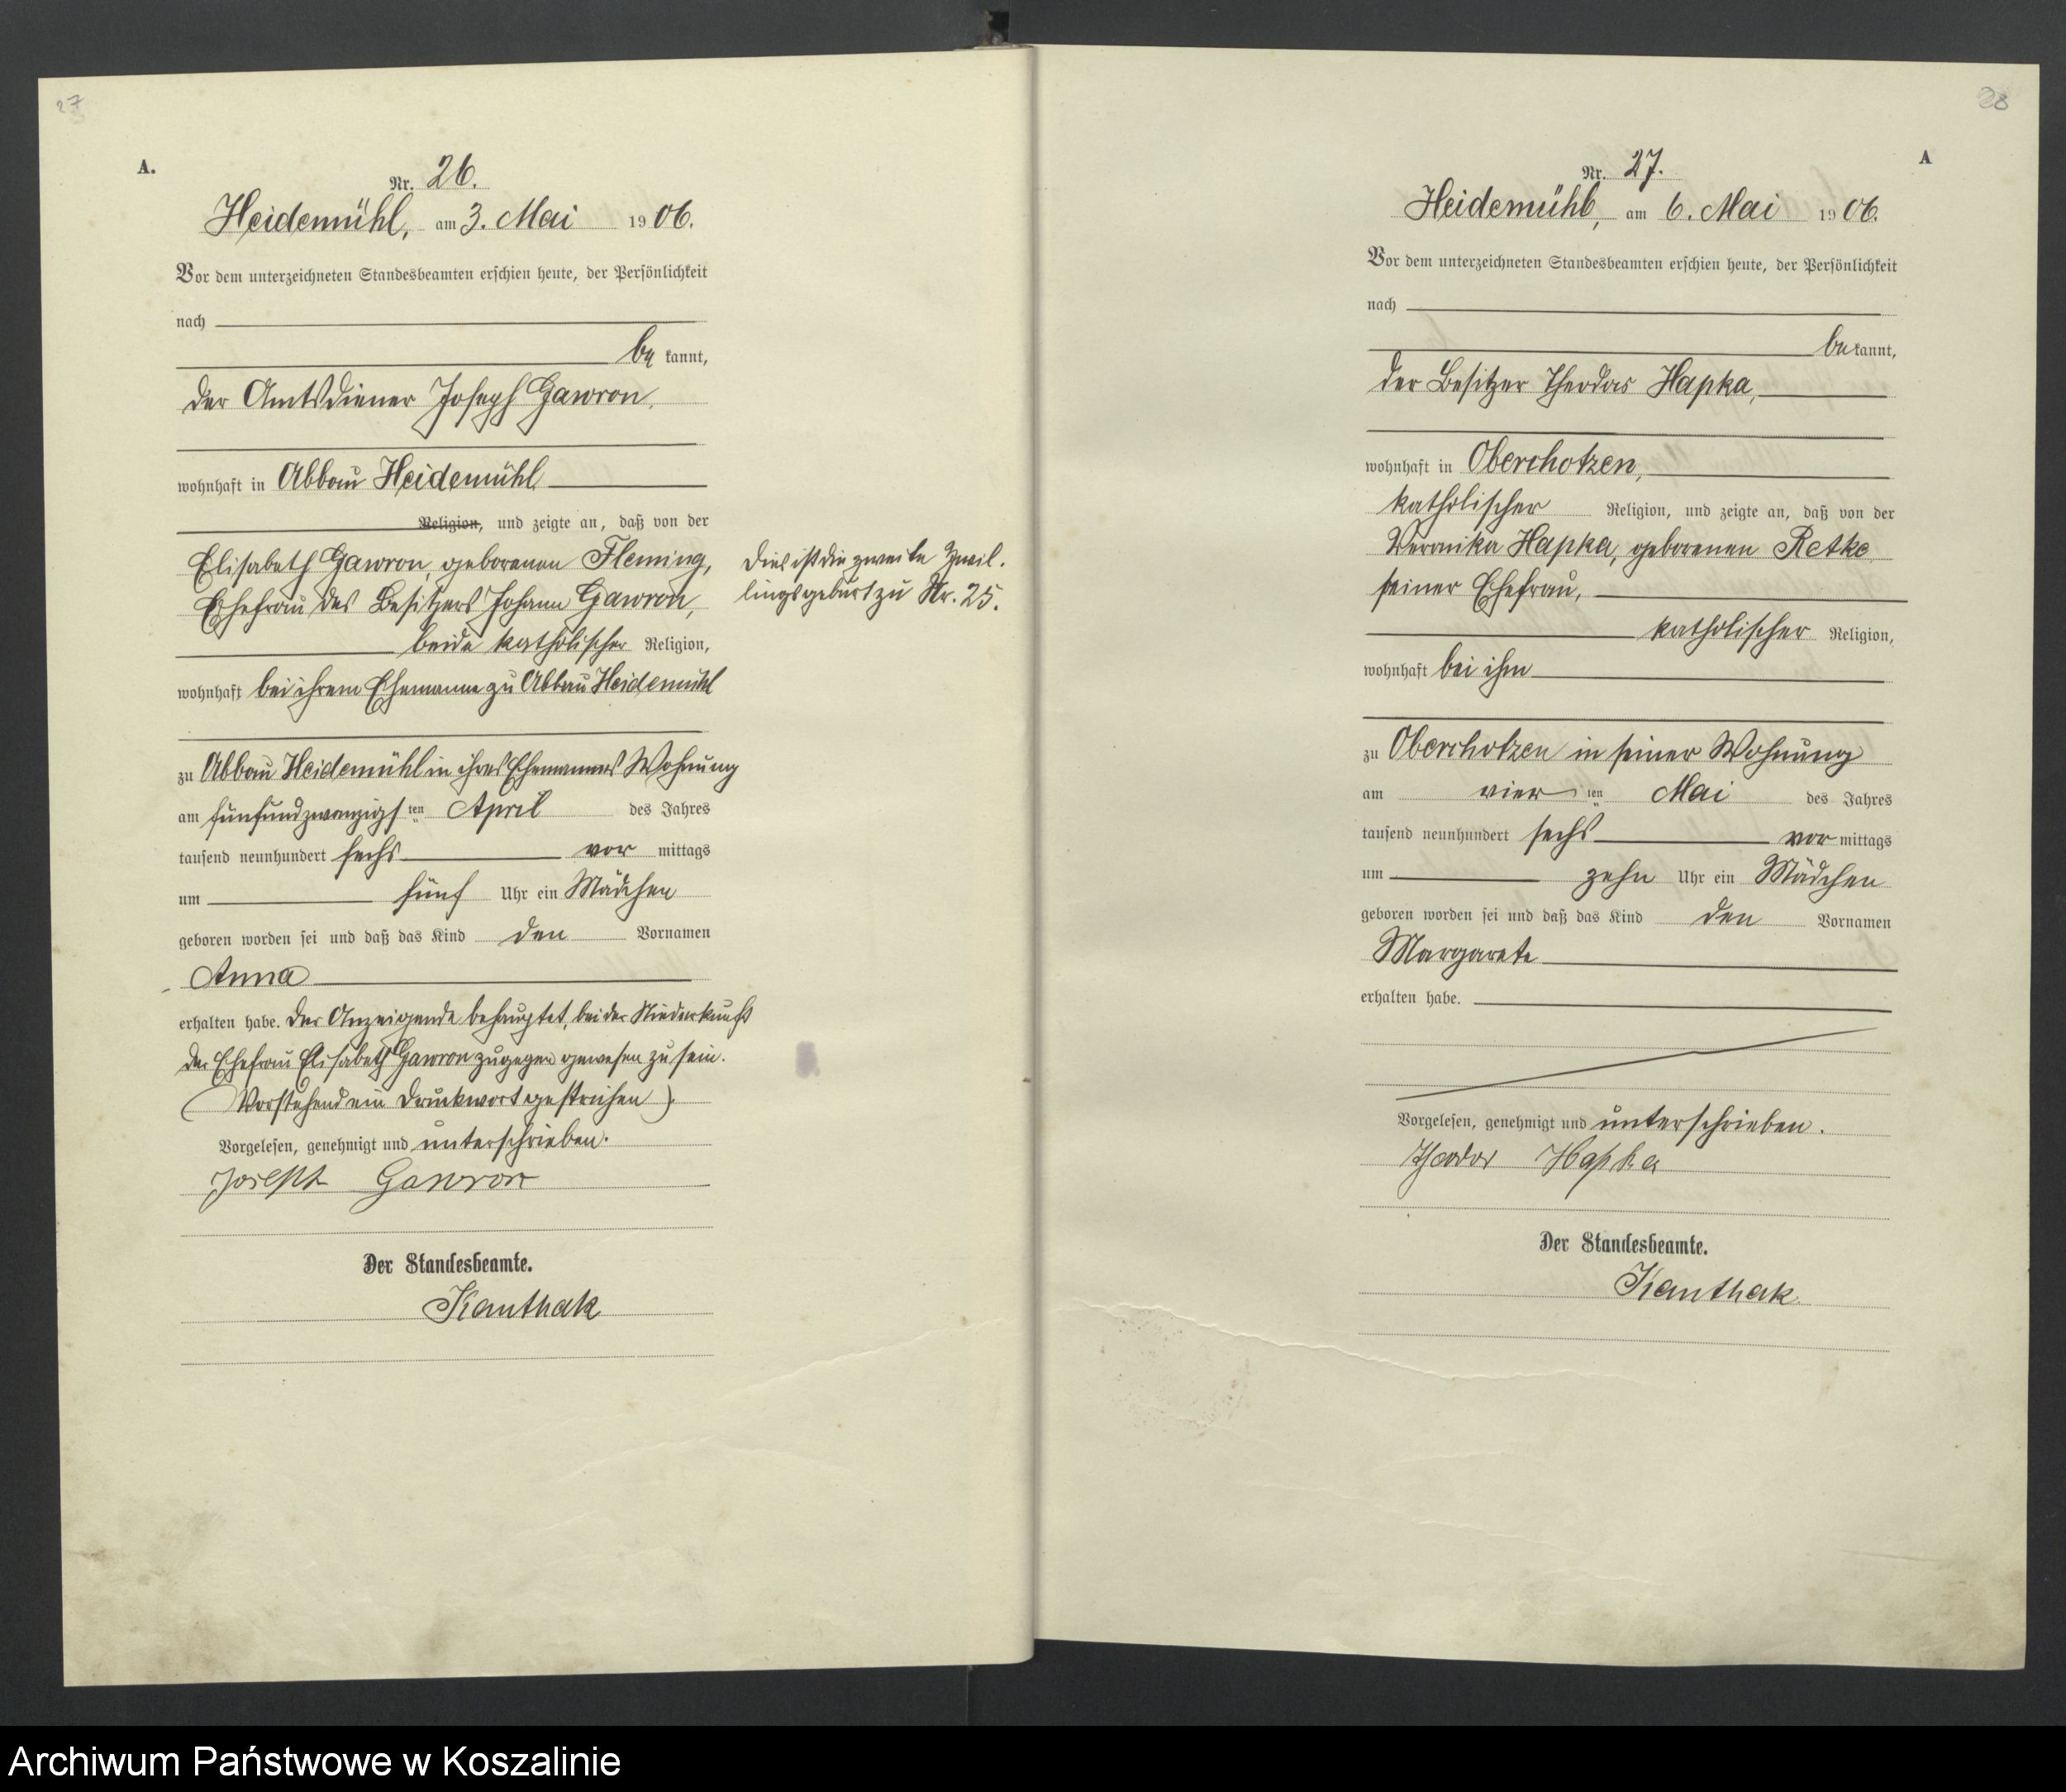 27
A.
Nr. 26.
Heidemühl, am 3. Mai 1906.
Vor dem unterzeichneten Standesbeamten erschien heute, der Persönlichkeit
nach
be kannt,
der Amtsdiener Joseph Gawron,
wohnhaft in Abbau Heidemühl
Religion, und zeigte an, daß von der
Elisabeth Gawron, geborenen Fleming,
Ehefrau des Besitzers Johann Gawron,
beide katholischer Religion,
wohnhaft bei ihrem Ehemanne zu Abbau Heidemühl
zu Abbau Heidemühl in ihres Ehemannes Wohnung
am fünfundzwanzigsten April des Jahres
tausend neunhundert sechs vor mittags
um fünf Uhr ein Mädchen
geboren worden sei und daß das Kind den Vornamen
Anna
erhalten habe. Der Anzeigende behauptet, bei der Niederkunft
der Ehefrau Elisabeth Gawron zugegen gewesen zu sein.
(Vorstehend ein Druckwort gestrichen).
Vorgelesen, genehmigt und unterschrieben.
Joseph Gawron
Der Standesbeamte.
Kanthak
Dies ist die zweite Zwil.
lingsgeburt zu Nr. 25.
28
A
Nr. 27.
Heidemühl, am 6. Mai 1906.
Vor dem unterzeichneten Standesbeamten erschien heute, der Persönlichkeit
nach
be kannt,
der Besitzer Theodor Hapka,
wohnhaft in Oberchotzen,
katholischer Religion, und zeigte an, daß von der
Veronika Hapka, geborenen Retke
seiner Ehefrau,
katholischer Religion,
wohnhaft bei ihm
zu Oberchotzen in seiner Wohnung
am vierten Mai des Jahres
tausend neunhundert sechs vor mittags
um zehn Uhr ein Mädchen
geboren worden sei und daß das Kind den Vornamen
Margarete
erhalten habe.
Vorgelesen, genehmigt und unterschrieben.
Theodor Hapka
Der Standesbeamte.
Kanthak.
Archiwum Państwowe w Koszalinie